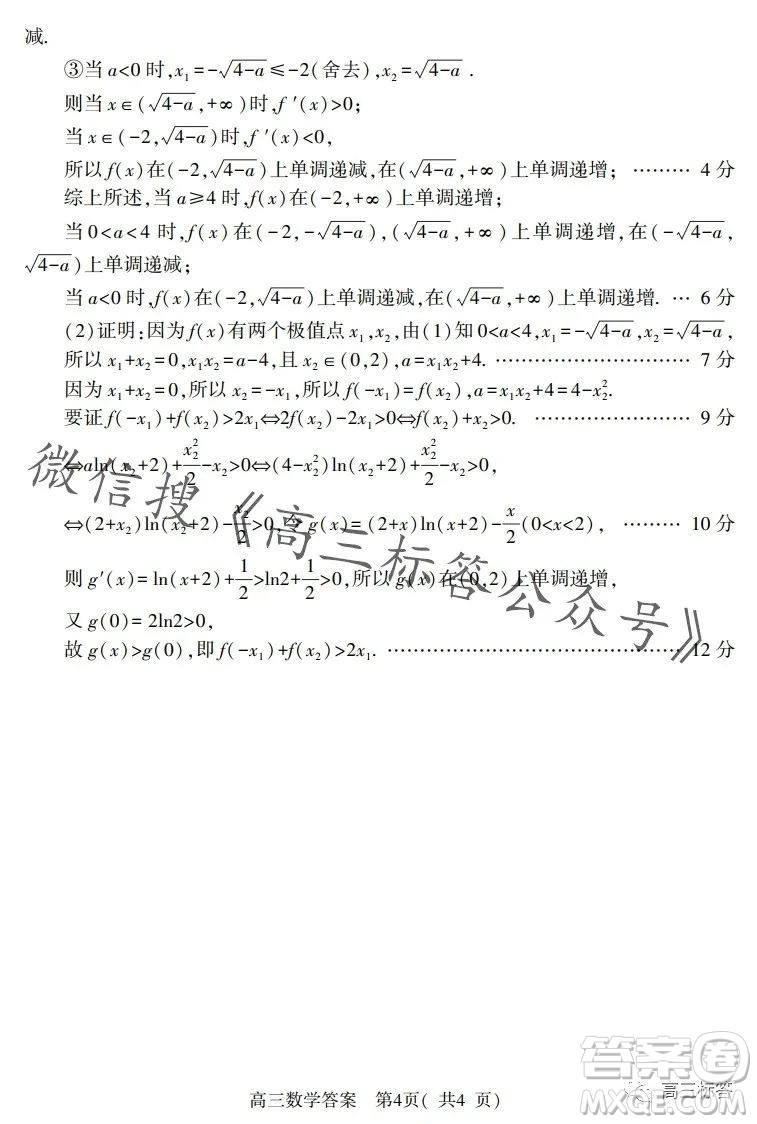 减.
③当 a<0 时,x₁=-√(4-a)≤-2(舍去),x₂=√(4-a) .
则当 x∈(√(4-a),+∞)时,f ′(x)>0;
当 x∈(-2,√(4-a))时,f ′(x)<0,
所以 f(x)在(-2,√(4-a))上单调递减,在(√(4-a),+∞)上单调递增; ……… 4 分
综上所述,当 a≥4 时,f(x)在(-2,+∞)上单调递增;
当 0<a<4 时,f(x)在(-2,-√(4-a)),(√(4-a),+∞)上单调递增,在(-√(4-a),
√(4-a))上单调递减;
当 a<0 时,f(x)在(-2,√(4-a))上单调递减,在(√(4-a),+∞)上单调递增. … 6 分
(2)证明:因为 f(x)有两个极值点 x₁,x₂,由(1)知 0<a<4,x₁=-√(4-a),x₂=√(4-a),
所以 x₁+x₂=0,x₁x₂=a-4,且 x₂∈(0,2),a=x₁x₂+4. ………………………… 7 分
因为 x₁+x₂=0,所以 x₂=-x₁,所以 f(-x₁)=f(x₂),a=x₁x₂+4=4-x₂².
要证 f(-x₁)+f(x₂)>2x₁⇔2f(x₂)-2x₁>0⇔f(x₂)+x₂>0. ………………… 9 分
⇔aln(x₂+2)+x₂²/2-x₂>0⇔(4-x₂²)ln(x₂+2)+x₂²/2-x₂>0,
⇔(2+x₂)ln(x₂+2)-x₂/2>0,令 g(x)=(2+x)ln(x+2)-x/2(0<x<2), ……… 10 分
则 g′(x)=ln(x+2)+1/2>ln2+1/2>0,所以 g(x)在(0,2)上单调递增,
又 g(0)=2ln2>0,
故 g(x)>g(0),即 f(-x₁)+f(x₂)>2x₁. ……………………………………… 12 分
微信搜《高三标答公众号》
高三数学答案 第4页( 共4 页)
答案圈
高三标答
MXQE.COM